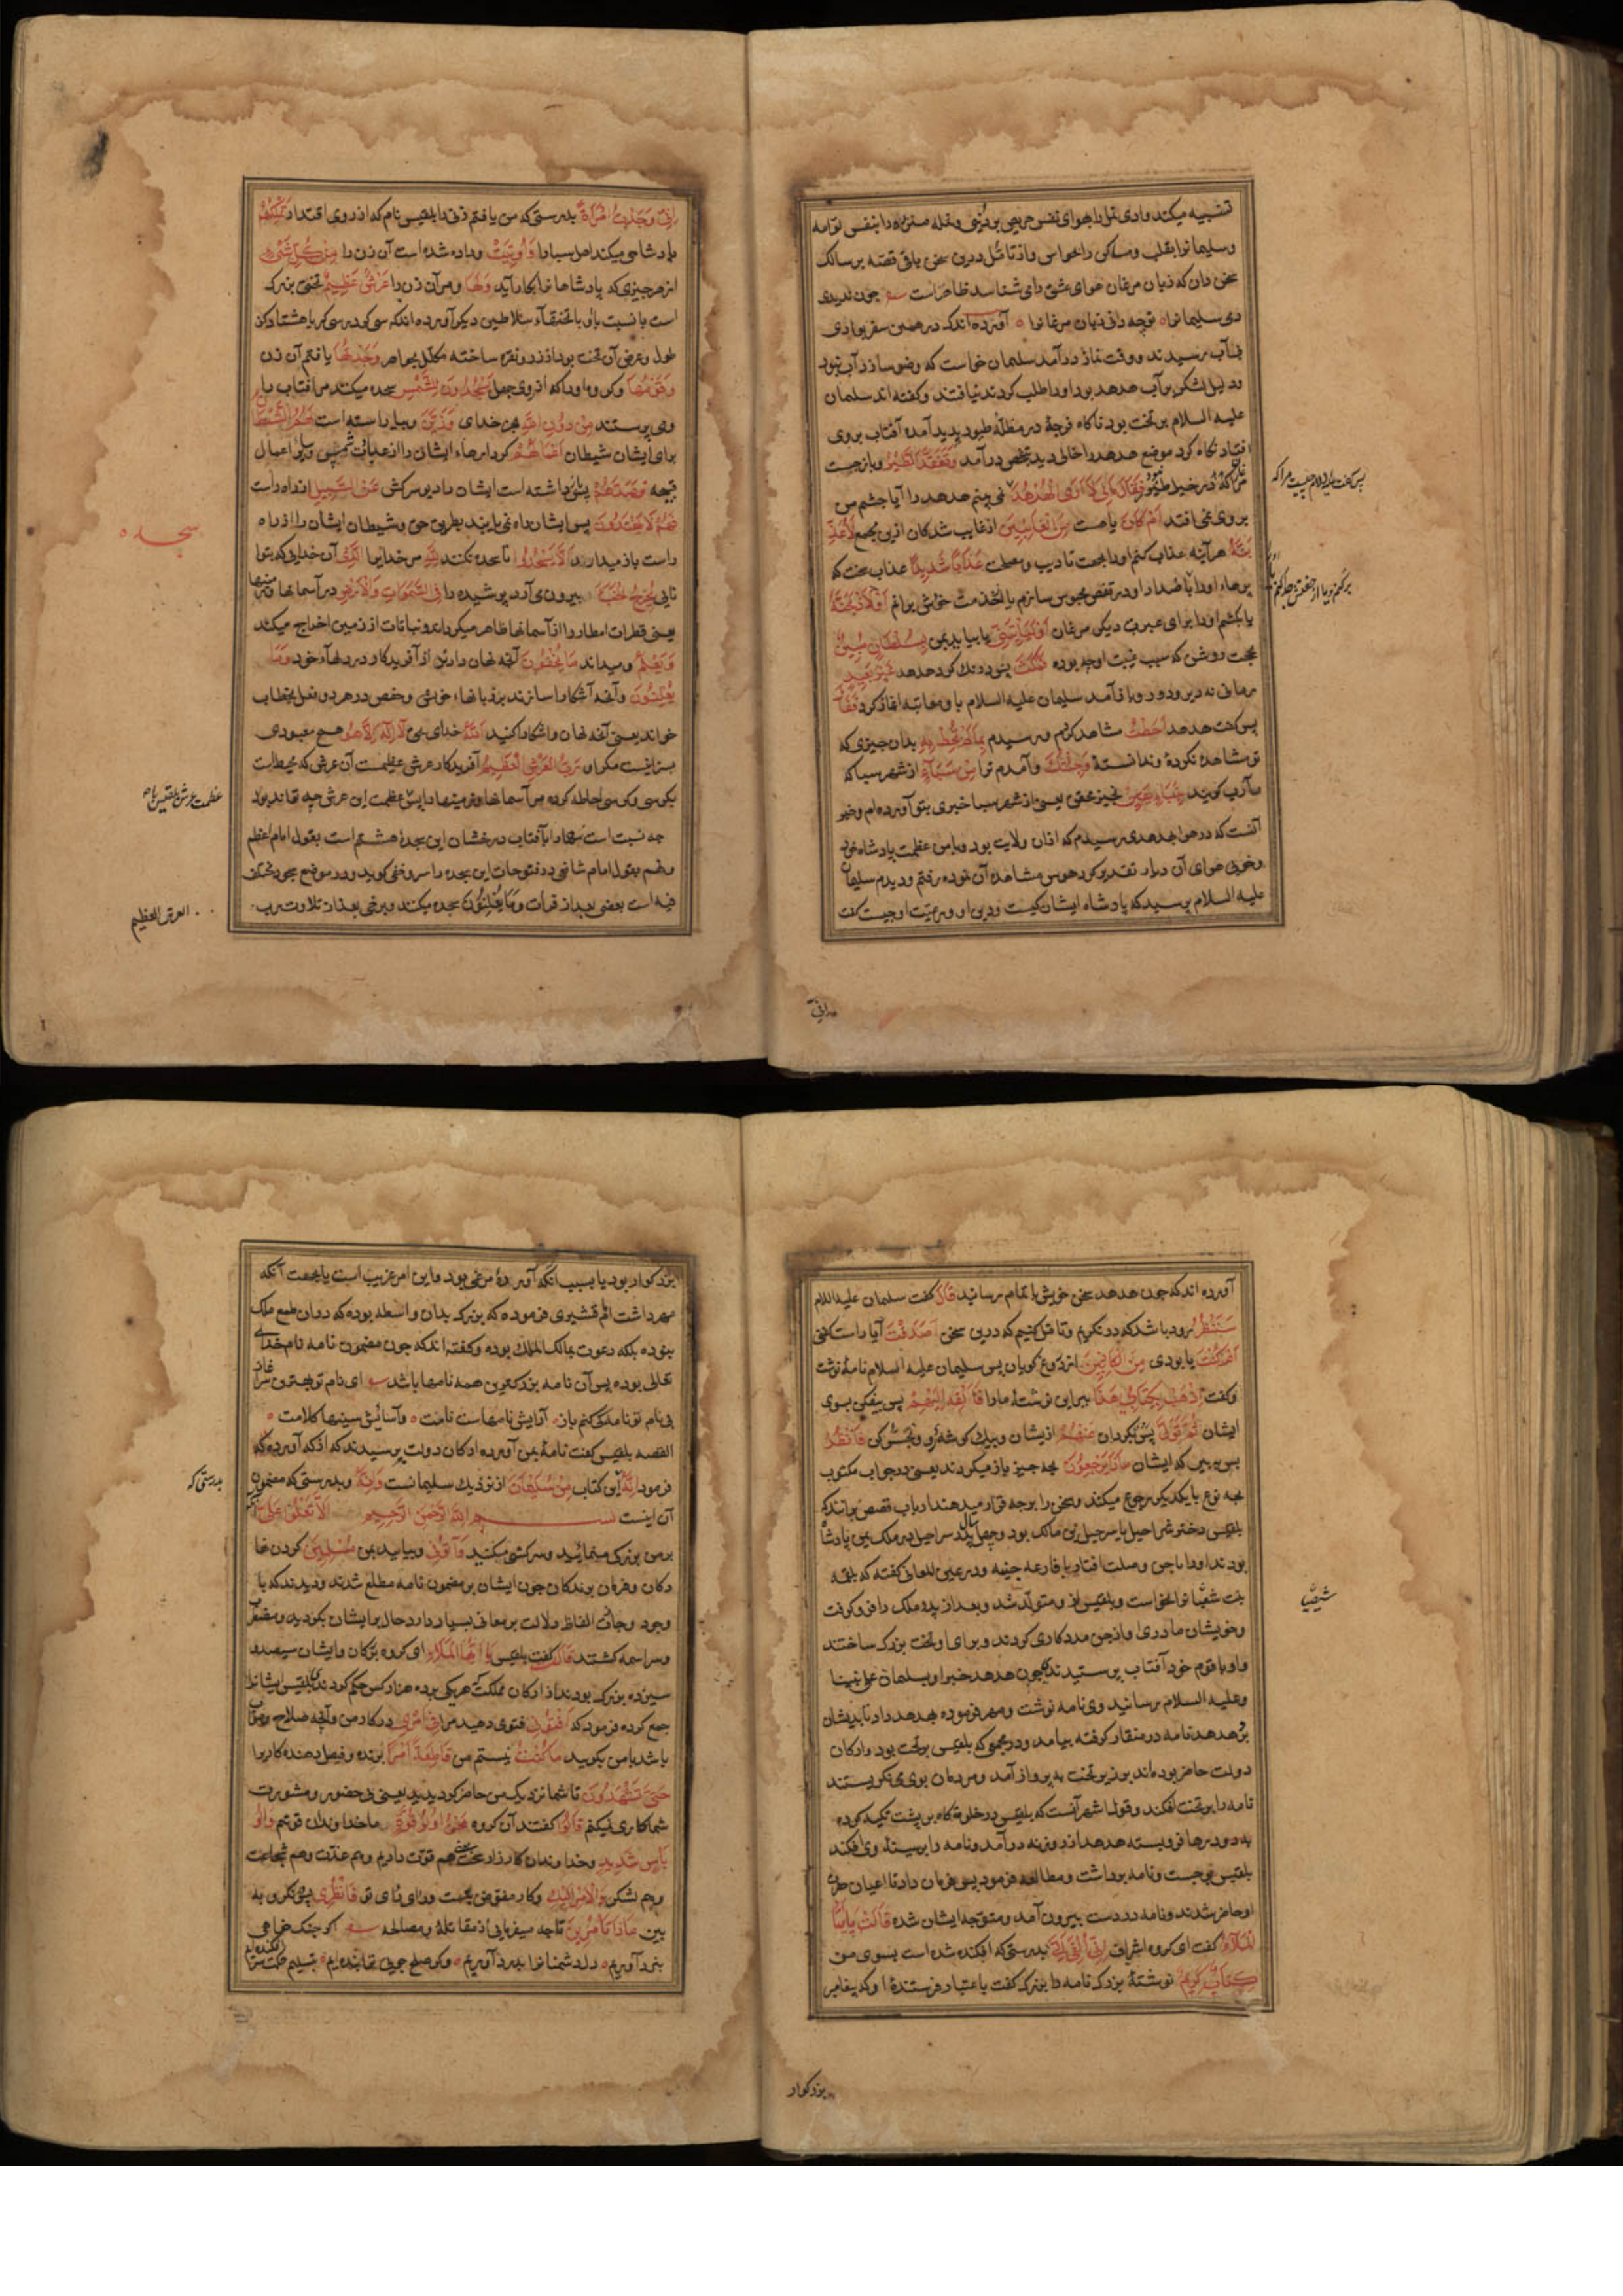 تشبیه میکند وادی نمل را بهوای نفس حریص بر دنیوی و نمله منذره را بنفس لوامه
و سلیمانرا بقلب و مساکن را بحواس و از تأمل درین سخن باقی قصه بر سالک
سخن دان که زبان مرغان هوای عشق دامی شناسد ظاهر است چون ندیدی
دمی سلیمانرا ٥ توچه دانی زبان مرغانرا ٥ آورده اند که در همین سفر بوادی
بی آب رسیدند و وقت نماز درآمد سلیمان خواست که وضو سازد آب نبود
و دلیل لشکر بر آب هدهد بود او را طلب کردند نیافتند و گفته اند سلیمان
علیه السلام بر تخت بود ناکاه فرجهٔ در مظلّه طیور پدید آمده آفتاب بروی
افتاد نکاه کرد موضع هدهد را خالی دید بتفحص درآمد وَتَفَقَّدَ الطَّيْرَ و باز جست
فَقَالَ مَا لِيَ لَا أَرَى الْهُدْهُدَ نمی بینم هدهد را آیا چشم من
بروی نمی افتد أَمْ كَانَ یا هست مِنَ الْغَائِبِينَ از غایب شدکان ازین مجمع لَأُعَذِّ
بَنَّهُ هرآینه عذاب کنم او را بجهت تادیب و مصلحت عَذَابًا شَدِيدًا عذاب سخت که
پرهاء او را یا ضداد او در قفص محبوس سازم یا از خدمت خویش برانم أَوْ لَأَذْبَحَنَّهُ
یا بکشم او را برای عبرت دیکر مرغان أَوْ لَيَأْتِيَنِّي یا بیاید بمن بِسُلْطَانٍ مُبِينٍ
بحجت روشن که سبب غیبت او چه بوده فَمَكَثَ پس درنک کرد هدهد غَيْرَ بَعِيدٍ
زمانی نه دیر و دور و باز آمد سلیمان علیه السلام با او معاتبه آغاز کرد فَقَالَ
پس کفت هدهد أَحَطْتُ مشاهده کردم و رسیدم بِمَا لَمْ تُحِطْ بِهِ بدان چیزی که
تو مشاهده نکردهٔ و ندانستهٔ وَجِئْتُكَ و آمدم ترا مِنْ سَبَإٍ از شهر سبا که
مأرب کویند بِنَبَإٍ يَقِينٍ بخبر محقق یعنی از شهر سبا خبری بتو آورده ام و خبر
آنست که در هوا بهدهدی رسیدم که ازان ولایت بود و با من عظمت پادشاه خود
و خوبی هوای آن دیار تقریر کرد هوس مشاهده آن نموده رفتم و دیدم سلیمان
علیه السلام پرسید که پادشاه ایشان کیست و دین او و رعیت او چیست کفت
إِنِّي وَجَدْتُ امْرَأَةً بدرستی که من یافتم زنی را بلقیس نام که از روی اقتدار تَمْلِكُهُمْ
پادشاهی میکند اهل سبا را وَأُوتِيَتْ و داده شده است آن زن را مِنْ كُلِّ شَيْءٍ
از هر چیزی که پادشاهانرا بکار آید وَلَهَا و مر آن زن را عَرْشٌ عَظِيمٌ تختی بزرک
است با نسبت باو یا بتختهاء سلاطین دیکر آورده اند که سی کز در سی کز یا هشتاد کز
طول و عرض آن تخت بود از زر و نقره ساخته مکلل بجواهر وَجَدْتُهَا یافتم آن زن
وَقَوْمَهَا و کروه او را که از روی جهل يَسْجُدُونَ لِلشَّمْسِ سجده میکنند مر آفتاب را
و می پرستند مِنْ دُونِ اللَّهِ بجز خدای وَزَيَّنَ و بیاراسته است لَهُمُ الشَّيْطَانُ
برای ایشان شیطان أَعْمَالَهُمْ کردارهاء ایشان را از عبادت شمس و سایر اعمال
قبیحه فَصَدَّهُمْ پس بازداشته است ایشان را دیو سرکش عَنِ السَّبِيلِ از راه راست
فَهُمْ لَا يَهْتَدُونَ پس ایشان راه نمی یابند بطریق حق و شیطان ایشان را از راه
راست باز میدارد أَلَّا يَسْجُدُوا تا سجده نکنند لِلَّهِ مر خدایرا الَّذِي آن خدایی که بتوا
نایی يُخْرِجُ الْخَبْءَ بیرون می آرد پوشیده را فِي السَّمَوَاتِ وَالْأَرْضِ در آسمانها و زمینها
یعنی قطرات امطار را از آسمانها ظاهر میکرداند و نباتات از زمین اخراج میکند
وَيَعْلَمُ و میداند مَا تُخْفُونَ آنچه نهان دارند از آفریدکار در دلهاء خود وَمَا
تُعْلِنُونَ و آنچه آشکارا سازند بر زبانهاء خویش و حفص در هر دو فعل بخطاب
خواند یعنی آنچه نهان و آشکارا کنید اللَّهُ خدای بحق لَا إِلَهَ إِلَّا هُوَ هیچ معبودی
بسزا نیست مکر او رَبُّ الْعَرْشِ الْعَظِيمِ آفریدکار عرش عظیمست آن عرشی که محیطست
بکرسی و کرسی احاطه کرده مر آسمانها و زمینها را پس عظمت این عرش چه تواند بود
چه نسبت است سها را با آفتاب درخشان این سجدهٔ هشتم است بقول امام اعظم
و نهم بقول امام شافعی و در فتوحات این سجده را سر خفی کوید و در موضع سجود مختلف
فیه است بعضی بعد از قرات وَمَا يُعْلِنُونَ سجده میکنند و برخی بعد از تلاوت رب
سجده
عظمت عرش بلقیس
العرش العظیم
انی
آورده اند که چون هدهد سخن خویش باتمام رسانید قَالَ کفت سلیمان علیه السلام
سَنَنْظُرُ زود باشد که در نکریم و تامل کنیم که درین سخن أَصَدَقْتَ آیا راست کفتی
أَمْ كُنْتَ یا بودی مِنَ الْكَاذِبِينَ از دروغ کویان پس سلیمان علیه السلام نامهٔ نوشت
و کفت اذْهَبْ بِكِتَابِي هَذَا ببر این نوشتهٔ ما را فَأَلْقِهْ إِلَيْهِمْ پس بیفکن بسوی
ایشان ثُمَّ تَوَلَّ پس بکردان عَنْهُمْ ازیشان و بیک کوشه رو و تجسس کن فَانْظُرْ
پس ببین که ایشان مَاذَا يَرْجِعُونَ بچه چیز باز میکردند یعنی در جواب مکتوب
بچه نوع با یکدیکر رجوع میکنند و سخن را بر چه قرار میدهند ارباب قصص برانند که
بلقیس دختر شراحیل یا سرحیل بن مالک بود و چهل پدر سراحیل در ملک یمن پادشا
بودند او را با جن وصلت افتاد با فارعه جنیه و در عین المعانی کفته که بلقمه
بنت شیصا نوالخواست و بلقیس ازو متولد شد و بعد از پدر ملک را فرو کرفت
و خویشان مادری او از جن مددکاری کردند و برای او تخت بزرک ساختند
و او با قوم خود آفتاب پرستیدندی چون هدهد خبر او بسلیمان علی نبینا
و علیه السلام رسانید وی نامه نوشت و مهر فرموده بهدهد داد تا بدیشان
برد هدهد نامه در منقار کرفته بیامد و در مجمعی که بلقیس بر تخت بود و ارکان
دولت حاضر بوده اند بر زبر تخت به پرواز آمد و مردمان بوی می نکریستند
نامه را بر تخت افکند و قول اشهر آنست که بلقیس در خلوتکاه بر پشت تکیه کرده
بود و درها فرو بسته هدهد از روزنه درآمد و نامه را بر سینهٔ وی افکند
بلقیس بر جست و نامه برداشت و مطالعه فرمود پس فرمان داد تا اعیان حضرت
او حاضر شدند و نامه در دست بیرون آمد و متوجه ایشان شده قَالَتْ يَا أَيُّهَا
الْمَلَأُ کفت ای کروه اشراف إِنِّي أُلْقِيَ إِلَيَّ بدرستی که افکنده شده است بسوی من
كِتَابٌ كَرِيمٌ نوشتهٔ بزرک نامه را بزرک کفت باعتبار فرستندهٔ او که پیغامبر
شیصبا
بزرکوار
بزرکوار بود یا بسبب آنکه آورندهٔ مرغی بود و این امر غریب است یا بجهت آنکه
مهر داشت امام قشیری فرموده که بزرک بدان واسطه بوده که دران طمع ملک
نبوده بلکه دعوت بمالک الملک بوده و کفته اند که چون مضمون نامه نام خدای
تعالی بوده پس آن نامه بزرکترین همه نامها باشد ای نام تو بهترین سرآغاز
بی نام تو نامه کی کنم باز ٥ آرایش نامهاست نامت ٥ و آسایش سینها کلامت ٥
القصه بلقیس کفت نامهٔ بمن آورده ارکان دولت پرسیدند که از که آورده که
فرمود إِنَّهُ این کتاب مِنْ سُلَيْمَانَ از نزدیک سلیمانست وَإِنَّهُ و بدرستی که مضمون
آن اینست بِسْمِ اللَّهِ الرَّحْمَنِ الرَّحِيمِ أَلَّا تَعْلُوا عَلَيَّ
بر من بزرکی منمائید و سرکشی مکنید وَأْتُونِي و بیایید بمن مُسْلِمِينَ کردن نها
دکان و فرمان برندکان چون ایشان بر مضمون نامه مطلع شدند و دیدند که با
وجود وجازت الفاظ دلالت بر معانی بسیار دارد حال بر ایشان بکردید و مضطر
و سراسمه کشتند قَالَتْ کفت بلقیس يَا أَيُّهَا الْمَلَأُ ای کروه بزرکان و ایشان سیصد و
سیزده بزرک بودند از ارکان مملکت هر یکی بر ده هزار کس حکم کردندی بلقیس ایشانرا
جمع کرده فرمود که أَفْتُونِي فتوی دهید مرا فِي أَمْرِي در کار من و آنچه صلاح و صواب
باشد با من بکویید مَا كُنْتُ نیستم من قَاطِعَةً أَمْرًا برنده و فیصل دهنده کار را
حَتَّى تَشْهَدُونِ تا شما نزدیک من حاضر کردید یعنی بی حضور و مشورت
شما کاری نمیکنم قَالُوا کفتند آن کروه نَحْنُ أُولُو قُوَّةٍ ما خداوندان قوتیم وَأُولُو
بَأْسٍ شَدِيدٍ و خداوندان کارزار سخت هم قوت داریم و هم عدت و هم شجاعت
و هم لشکر وَالْأَمْرُ إِلَيْكِ و کار مفوض بتست و رای رای تو فَانْظُرِي پس نکر و به
بین مَاذَا تَأْمُرِينَ تا چه میفرمایی از مقاتله و مصالحه اکر جنک خواهی
بنبرد آوریم ٥ دل دشمنانرا بدرد آوریم ٥ وکر صلح جویی ترا بنده ایم ٥ بتسلیم حکمت سر افکنده ایم
بدرستی که